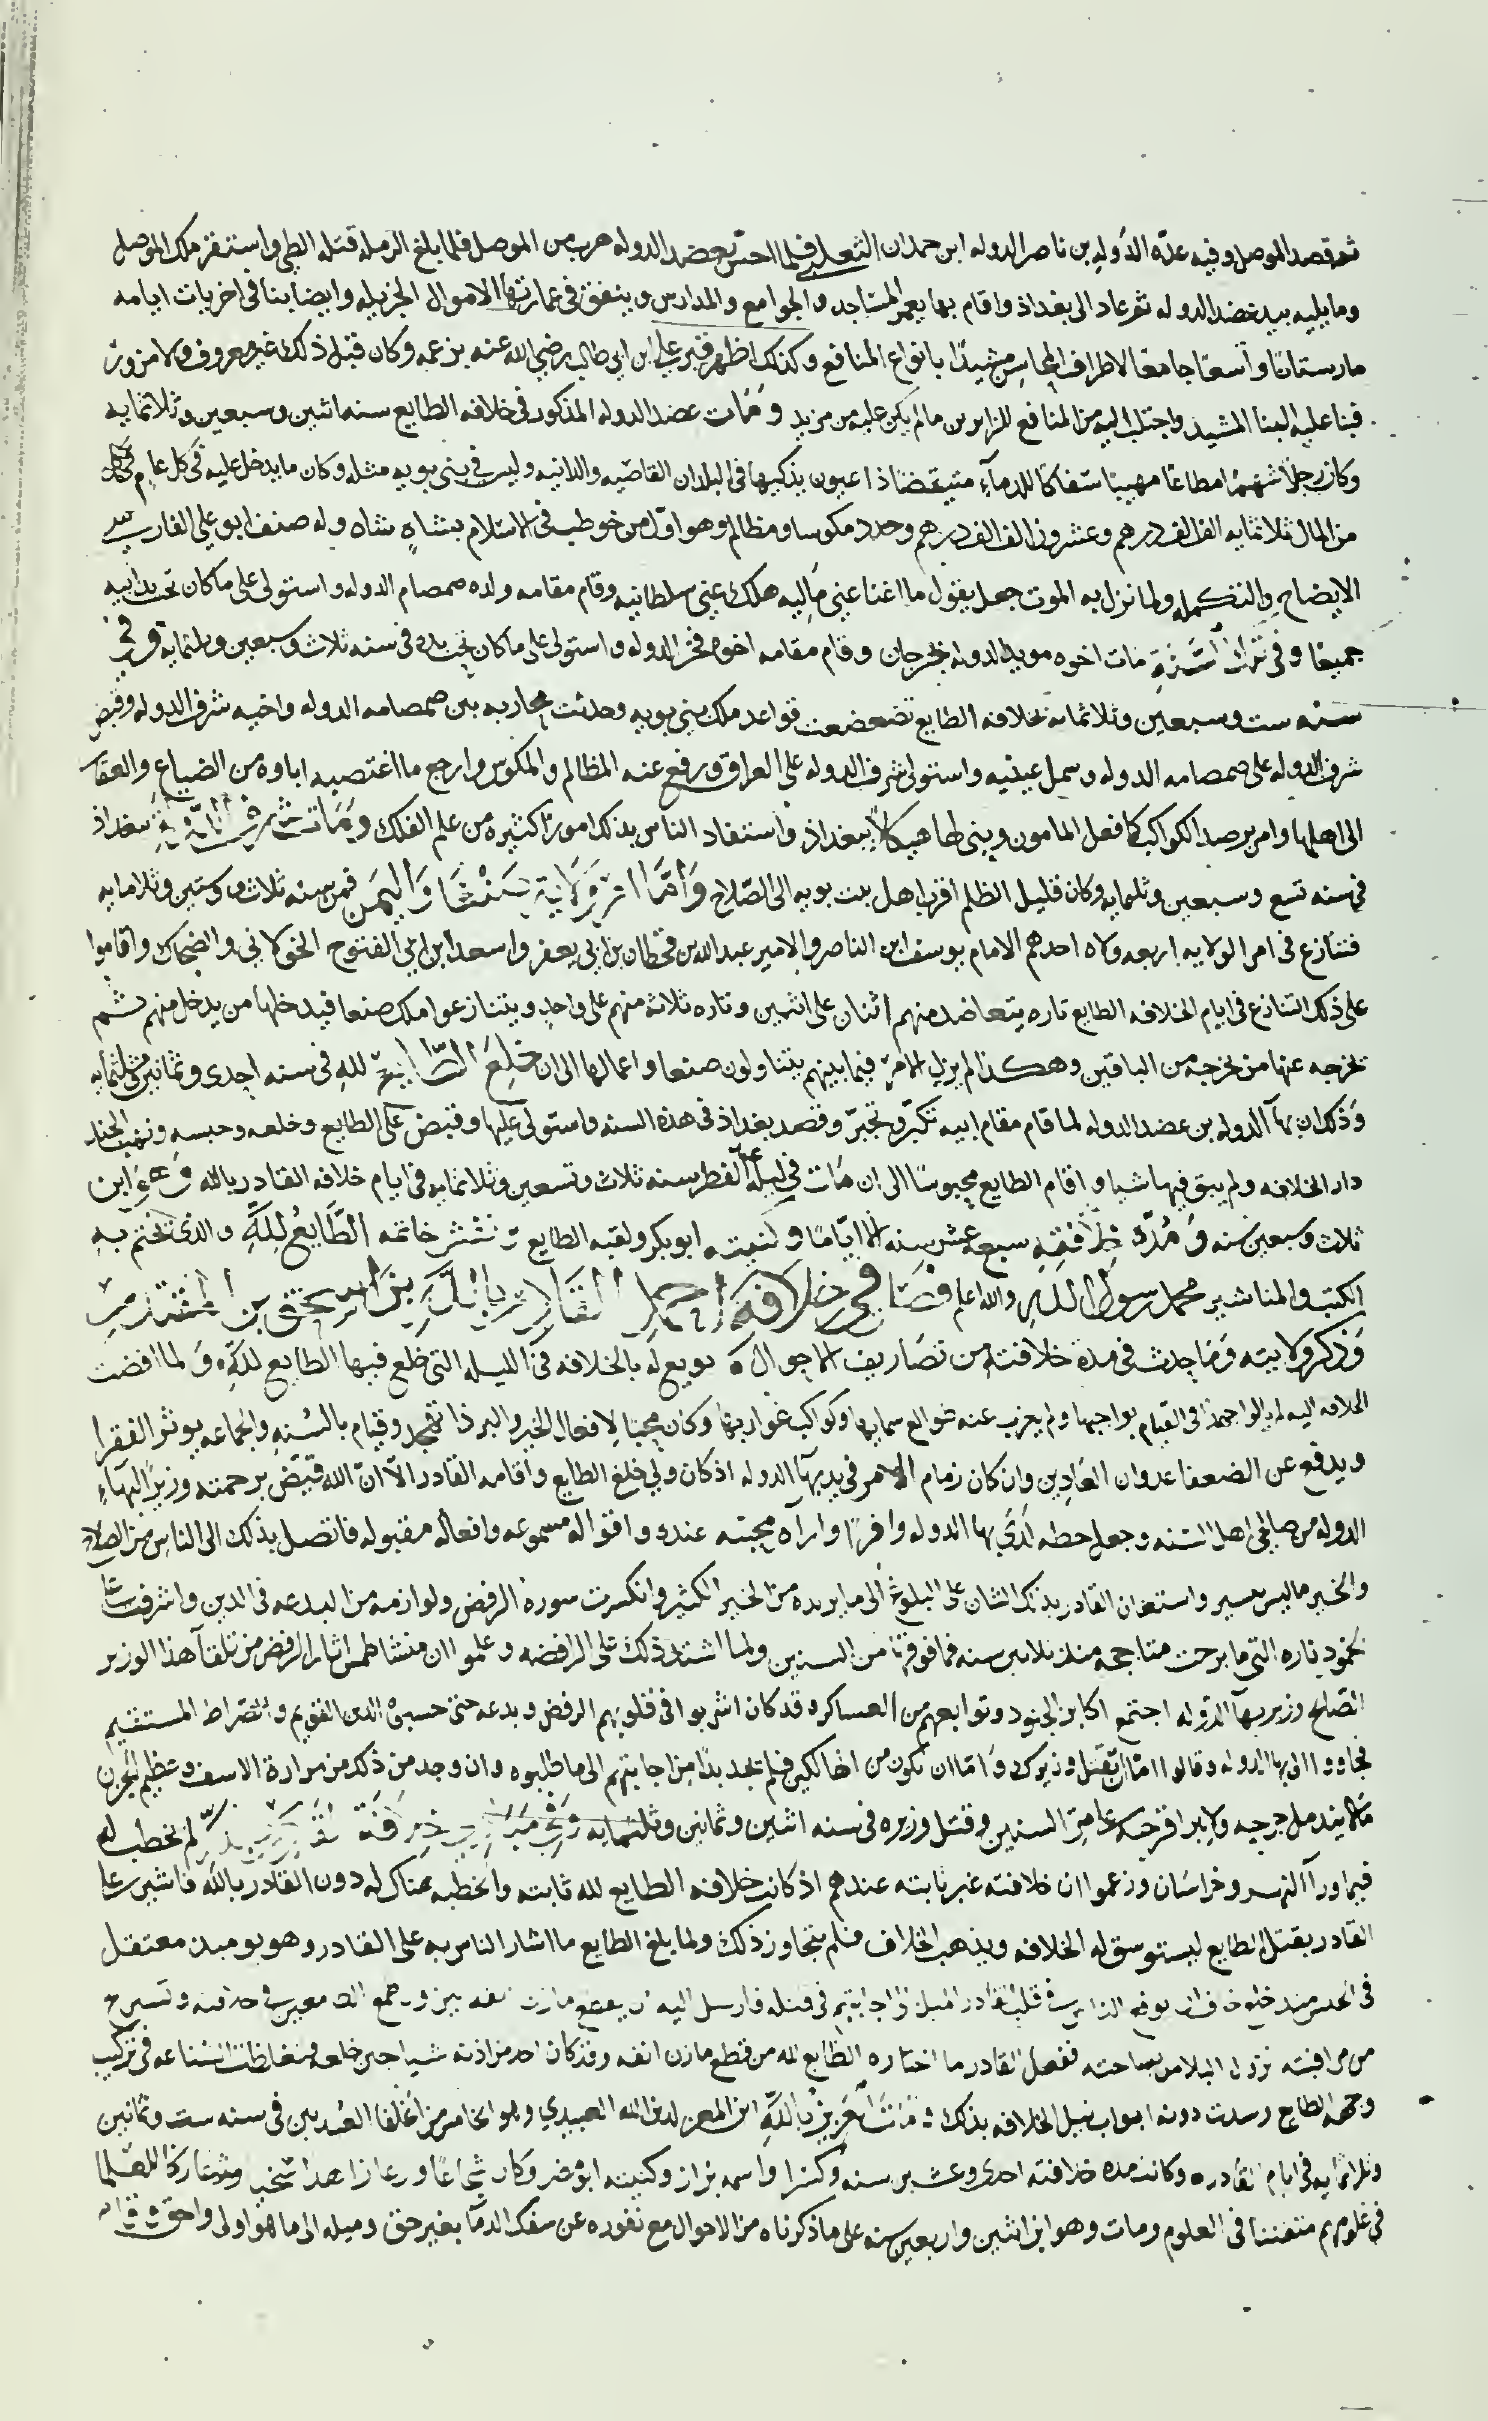 ثم قصد الموصل وفيه عدة الدوله بن ناصر الدوله ابن حمدان التغلبي فلما احس بعضد الدوله هرب من الموصل فلما بلغ الرمله قتله الطي واستقر ملك الموصل
وما يليه بيد عضد الدوله ثم عاد الى بغداذ واقام بها يعمر المساجد والجوامع والمدارس وينفق في عمارتها الاموال الجزيله وايضا بنا في اخريات ايامه
مارستانا واسعا جامعا لاطراف المحاسن مشيدا بانواع المنافع وكذلك اظهر قبر علي ابن ابي طالب رضي الله عنه بزعمه وكان قبل ذلك غير معروف ولا مزور
فبنا عليه البنا المشيد واجتلب اليه من المنافع للزايرين ما لم يكن عليه من مزيد ومات عضد الدوله المذكور في خلافه الطايع سنه اثنين وسبعين وثلاثمايه
وكان رجلا شهما مطاعا مهيبا سفاكا للدمآء متيقضا ذا عيون يذكيها في البلدان القاصيه والدانيه وليس في بني بويه مثله وكان ما يدخل عليه في كل عام
من المال ثلاثمايه الف الف درهم وعشرون الف الف درهم وحدد مكوسا ومظالم وهو اول من خوطب في الاسلام بشاه شاه وله صنف ابو علي الفارسي
الايضاح والتكمله ولما نزل به الموت جعل يقول ما اغنا عني ماليه هلك عني سلطانيه وقام مقامه ولده صمصام الدوله واستولى على ما كان تحت يد ابيه
جميعا وفي مات اخوه مويد الدوله بجرجان وقام مقامه اخوه فخر الدوله واستولى على ما كان تحت يده في سنه ثلاث وسبعين وثلثمايه وفي
سنه ست وسبعين وثلاثمايه بخلافه الطايع تضعضعت قواعد ملك بني بويه وحدثت محاربه بين صمصامه الدوله واخيه شرف الدوله وقبض
شرف الدوله على صمصامه الدوله وسمل عينيه واستولى شرف الدوله على العراق ورفع عنه المظالم والمكوس وارجع ما اغتصبه اباوه من الضياع والعقار
الى اهلها وامر برصد الكواكب كما فعل المامون وبنى لها هيكلا ببغداذ واستفاد الناس بذلك امورا كثيره من علم الفلك ومات شرف الدوله ببغداذ
في سنه تسع وسبعين وثلثمايه وكان قليل الظلم اقرب اهل بيت بويه الى الصلاح واما امر ولاية صنعا واليمن فمن سنه ثلاث وستين وثلثمايه
فتنازع في امر الولايه اربعه ولاه احدهم الامام يوسف ابن الناصر والامير عبد الله بن قحطان بن ابي يعفر واسعد ابن ابي الفتوح الخولاني والضحاك واقاموا
على ذلك التنازع في ايام الخلافه الطايع تاره يتعاضد منهم اثنان على اثنين وتاره ثلاث منهم على واحد ويتنازعوا ملك صنعا فيدخلها من يدخل منهم ثم
يخرجه عنها من يخرجه من الباقين وهكذا لم يزل الامر فيما بينهم يتناولون صنعا واعمالها الى ان خلع الطايع لله في سنه احدى وثمانين وثلثمايه
وذلك ان بهآ الدوله بن عضد الدوله لما قام مقام ابيه تكبر وتجبر وقصد بغداذ في هذه السنه واستولى عليها وقبض على الطايع وخلعه وحبسه ونهب الجند
دار الخلافه ولم يبق فيها شيا واقام الطايع محبوسا الى ان مات في ليله عيد الفطر سنه ثلاث وتسعين وثلاثمايه في ايام خلافه القادر بالله وهو ابن
ثلاث وسبعين سنه ومدة خلافته سبعه عشر سنه الا اياما وكنيته ابو بكر ولقبه الطايع نقش خاتمه الطايع لله والذي تختم به
الكتب والمناشير محمد رسول الله والله اعلم فصل في خلافة احمد القادر بالله بن اسحق بن المقتدر
وذكر ولايته وما حدث في مدة خلافته من تصاريف الاحوال بويع له بالخلافه في الليله التي خلع فيها الطايع لله ولما افضت
الخلافه اليه لم يالوا جهدا في القيام بواجبها ولم يعزب عنه طوالع سمايها وكواكب غواربها وكان محبا لافعال الخير والبر ذا تهجد وقيام بالسنه والجماعه يوثر الفقرا
ويدفع عن الضعفا عدوان العادين وان كان زمام الامر في يد بهآ الدوله اذ كان ولي خلع الطايع واقامه القادر الا ان الله قيض برحمته وزير البهاء
الدوله من صالحي اهل السنه وجعل حظه لدى بها الدوله وافرا واراه محبته عنده واقواله مسموعه وافعاله مقبوله فاتصل بذلك الى الناس من الصلاح
والخير ما ليس بيسير واستعان القادر بذلك الشان على البلوغ الى ما يريده من الخير الكثير وانكسرت سورة الرفض ولوازمه من البدعه في الدين واشرفت على
خمود ناره التي ما برحت متاججه منذ ثلاثين سنه فما فوقها من السنين ولما اشتد ذلك على الرافضه وعلموا ان منشا طمس اثار الرفض من تلقآ هذا الوزير
الصالح وزير بهآ الدوله اجتمع اكابر الجنود وتوابعهم من العساكر وقد كان اشربوا في قلوبهم الرفض وبدعه حتى حسبوه الدين القويم والصراط المستقيم
فجاووا الى بها الدوله وقالوا اما ان تقتل وزيرك واما ان تكون من الهالكين فلم يجد بدا من اجابتهم الى ما طلبوه وان وجد من ذلك من مرارة الاسف وعظيم الحزن
ما لا يندمل جرحه ولا يبرا قرحه على مر السنين وقتل وزيره في سنه اثنين وثمانين وثلثمايه لم يخطب له
فيما ورآ النهر وخراسان وزعموا ان خلافته غير ثابته عندهم اذ كانت خلافه الطايع لله ثابته والخطبه هناك له دون القادر بالله فاشير على
القادر بقتل الطايع ليستوسق له الخلافه ويذهب الخلاف فلم يتجاوز ذلك ولما بلغ الطايع ما اشار الناس به على القادر وهو يوميذ معتقل
في الحبس منذ خلع في قلب القادر الميل الى اجابتهم في قتله فارسل اليه ان يقطع مارن انفه
من مرافبته ففعل القادر ما اختاره الطايع له من قطع مارن انفه وقد كان احد من اذنه شيا حين خلعه
وجه الطايع وسدت دونه ابواب نيل الخلافه بذلك مات العزيز بالله ابن المعز لدين الله العبيدي وهو الخامس من الخلفا العبيديين في سنه ست وثمانين
وثلاثمايه في ايام القادر وكانت مده خلافته احدى وعشرين سنه وكسرا واسمه نزار وكنيته ابو نصر وكان شجاعا
في علومهم متفننا في العلوم ومات وهو ابن اثنين واربعين سنه على ما ذكرناه من الاحوال مع نفوره عن سفك الدمآ بغير حق وميله الى ما هو اولى واحق